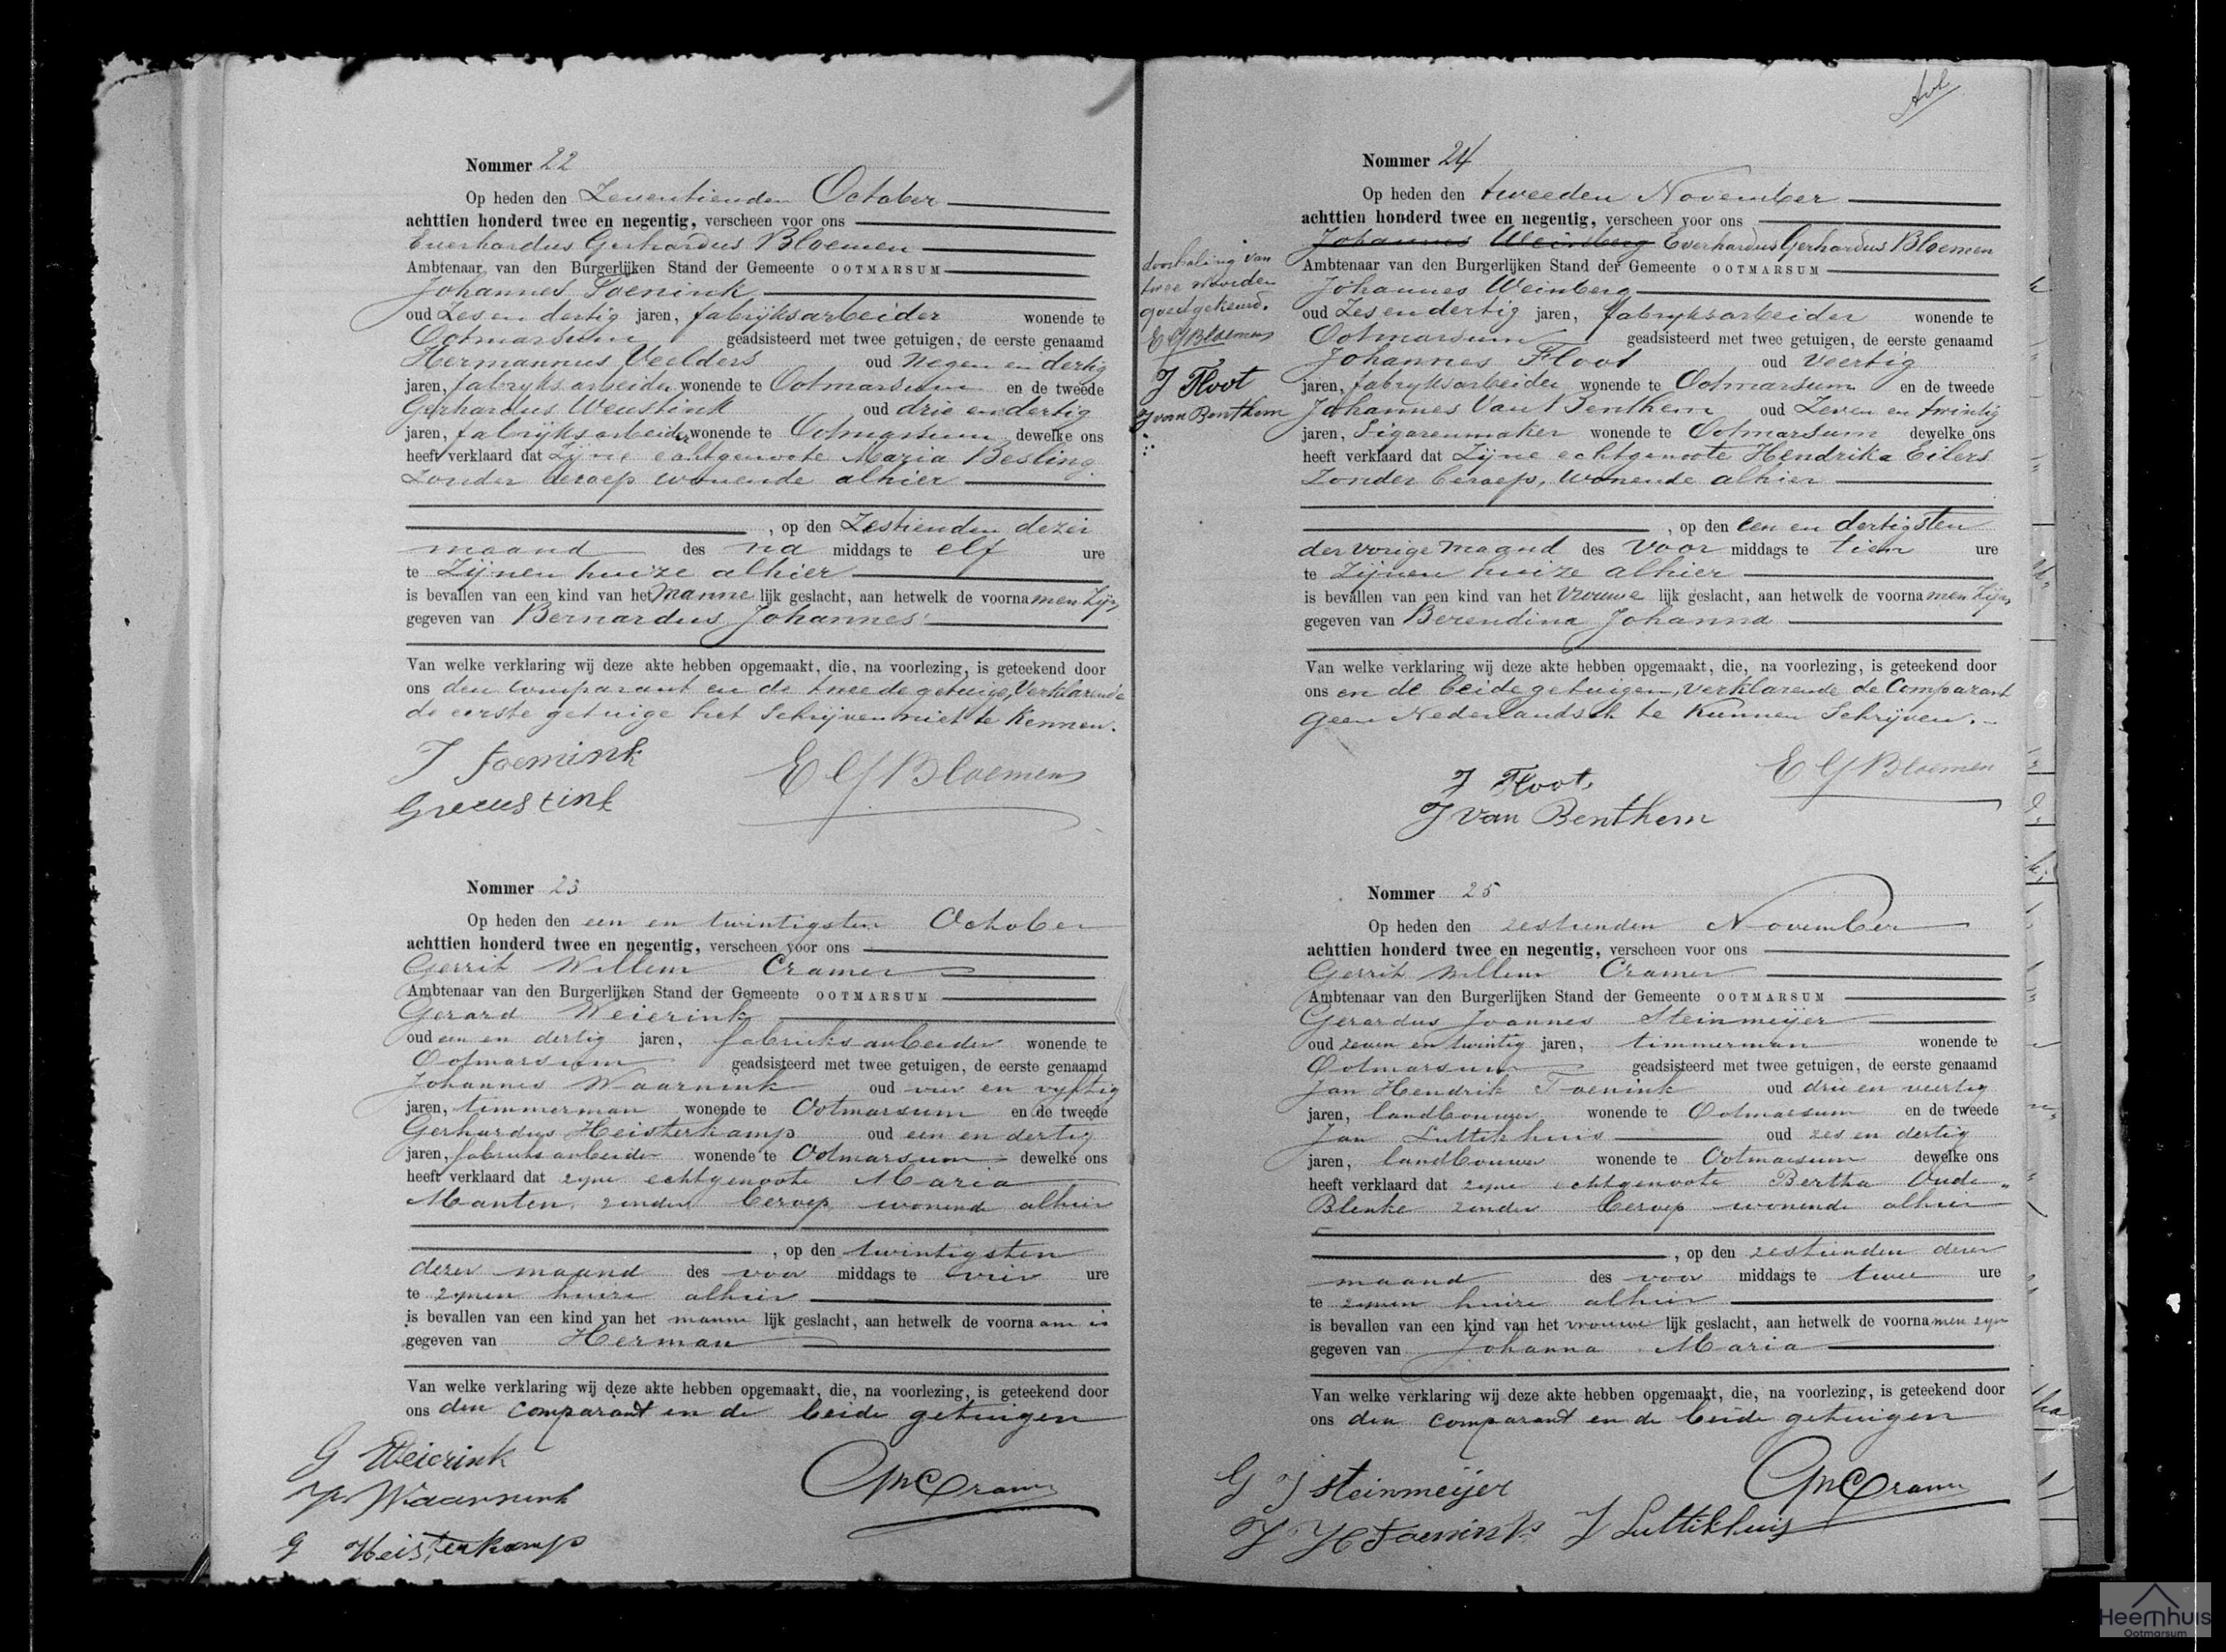 Nommer 22
Op heden den Zeventienden October
achttien honderd twee en negentig, verscheen voor ons
Everhardus Gerhardus Bloemen
Ambtenaar van den Burgerlijken Stand der Gemeente OOTMARSUM
Johannes Toenink
oud Zes en dertig jaren, fabrijksarbeider wonende te
Ootmarsum geadsisteerd met twee getuigen, de eerste genaamd
Hermannus Velders oud negen en dertig
jaren, fabrijksarbeider wonende te Ootmarsum en de tweede
Gerhardus Weustink oud drie en dertig
jaren, fabrijksarbeider wonende te Ootmarsum dewelke ons
heeft verklaard dat Zijne echtgenoote Maria Besling
Zonder beroep wonende alhier
, op den Zestienden dezer
maand des na middags te elf ure
te Zijnen huize alhier
is bevallen van een kind van het manne lijk geslacht, aan hetwelk de voornamen Zijn
gegeven van Bernardus Johannes
Van welke verklaring wij deze akte hebben opgemaakt, die, na voorlezing, is geteekend door
ons den comparant en de tweede getuige, Verklarende
de eerste getuige het Schrijven niet te Kennen.
J Toenink
EGBloemen
GWeustink
Nommer 23
Op heden den een en twintigsten October
achttien honderd twee en negentig, verscheen voor ons
Gerrit Willem Cramer
Ambtenaar van den Burgerlijken Stand der Gemeente OOTMARSUM
Gerard Weierink
oud een en dertig jaren, fabrieksarbeider wonende te
Ootmarsum geadsisteerd met twee getuigen, de eerste genaamd
Johannes Waarnink oud vier en vyftig
jaren, timmerman wonende te Ootmarsum en de tweede
Gerhardus Heisterkamp oud een en dertig
jaren, fabrieksarbeider wonende te Ootmarsum dewelke ons
heeft verklaard dat zyne echtgenoote Maria
Manten, zonder beroep wonende alhier
, op den twintigsten
dezer maand des voor middags te vier ure
te zynen huize alhier
is bevallen van een kind van het manne lijk geslacht, aan hetwelk de voornaam is
gegeven van Herman
Van welke verklaring wij deze akte hebben opgemaakt, die, na voorlezing, is geteekend door
ons den comparant en de beide getuigen
G Weierink
Waarnink
GWCramer
G Heisterkamp
doorhaling van
twee woorden
goedgekeurd.
EGBloemen
J Floot
J van Benthem
Nommer 24
Op heden den tweeden November
achttien honderd twee en negentig, verscheen voor ons
Johannes Weinberg Everhardus Gerhardus Bloemen
Ambtenaar van den Burgerlijken Stand der Gemeente OOTMARSUM
Johannes Weinberg
oud Zes en dertig jaren, fabryksarbeider wonende te
Ootmarsum geadsisteerd met twee getuigen, de eerste genaamd
Johannes Floot oud veertig
jaren, fabryksarbeider wonende te Ootmarsum en de tweede
Johannes Van Benthem oud Zeven en twintig
jaren, Sigarenmaker wonende te Ootmarsum dewelke ons
heeft verklaard dat Zijne echtgenoote Hendrika Eilers
Zonder beroep, wonende alhier
, op den een en dertigsten
der vorige maand des voor middags te tien ure
te Zijnen huize alhier
is bevallen van een kind van het vrouwe lijk geslacht, aan hetwelk de voornamen Zijn
gegeven van Berendina Johanna
Van welke verklaring wij deze akte hebben opgemaakt, die, na voorlezing, is geteekend door
ons en de beide getuigen, verklarende de Comparant
geen Nederlandsch te Kunnen Schrijven.
EGBloemen
J Floot
J van Benthem
Nommer 25
Op heden den zestienden November
achttien honderd twee en negentig, verscheen voor ons
Gerrit Willem Cramer
Ambtenaar van den Burgerlijken Stand der Gemeente OOTMARSUM
Gerardus Joannes Steinmeijer
oud zeven en twintig jaren, timmerman wonende te
Ootmarsum geadsisteerd met twee getuigen, de eerste genaamd
Jan Hendrik Toenink oud drie en veertig
jaren, landbouwer wonende te Ootmarsum en de tweede
Jan Luttikhuis oud zes en dertig
jaren, landbouwer wonende te Ootmarsum dewelke ons
heeft verklaard dat zyne echtgenoote Bertha Oude
Blenke zonder beroep wonende alhier
, op den zestienden dezer
maand des voor middags te twee ure
te zynen huize alhier
is bevallen van een kind van het vrouwe lijk geslacht, aan hetwelk de voornamen zyn
gegeven van Johanna Maria
Van welke verklaring wij deze akte hebben opgemaakt, die, na voorlezing, is geteekend door
ons den comparant en de beide getuigen
G J Steinmeijer
GWCramer
J H Toenink J Luttikhuis
Heemhuis
Ootmarsum